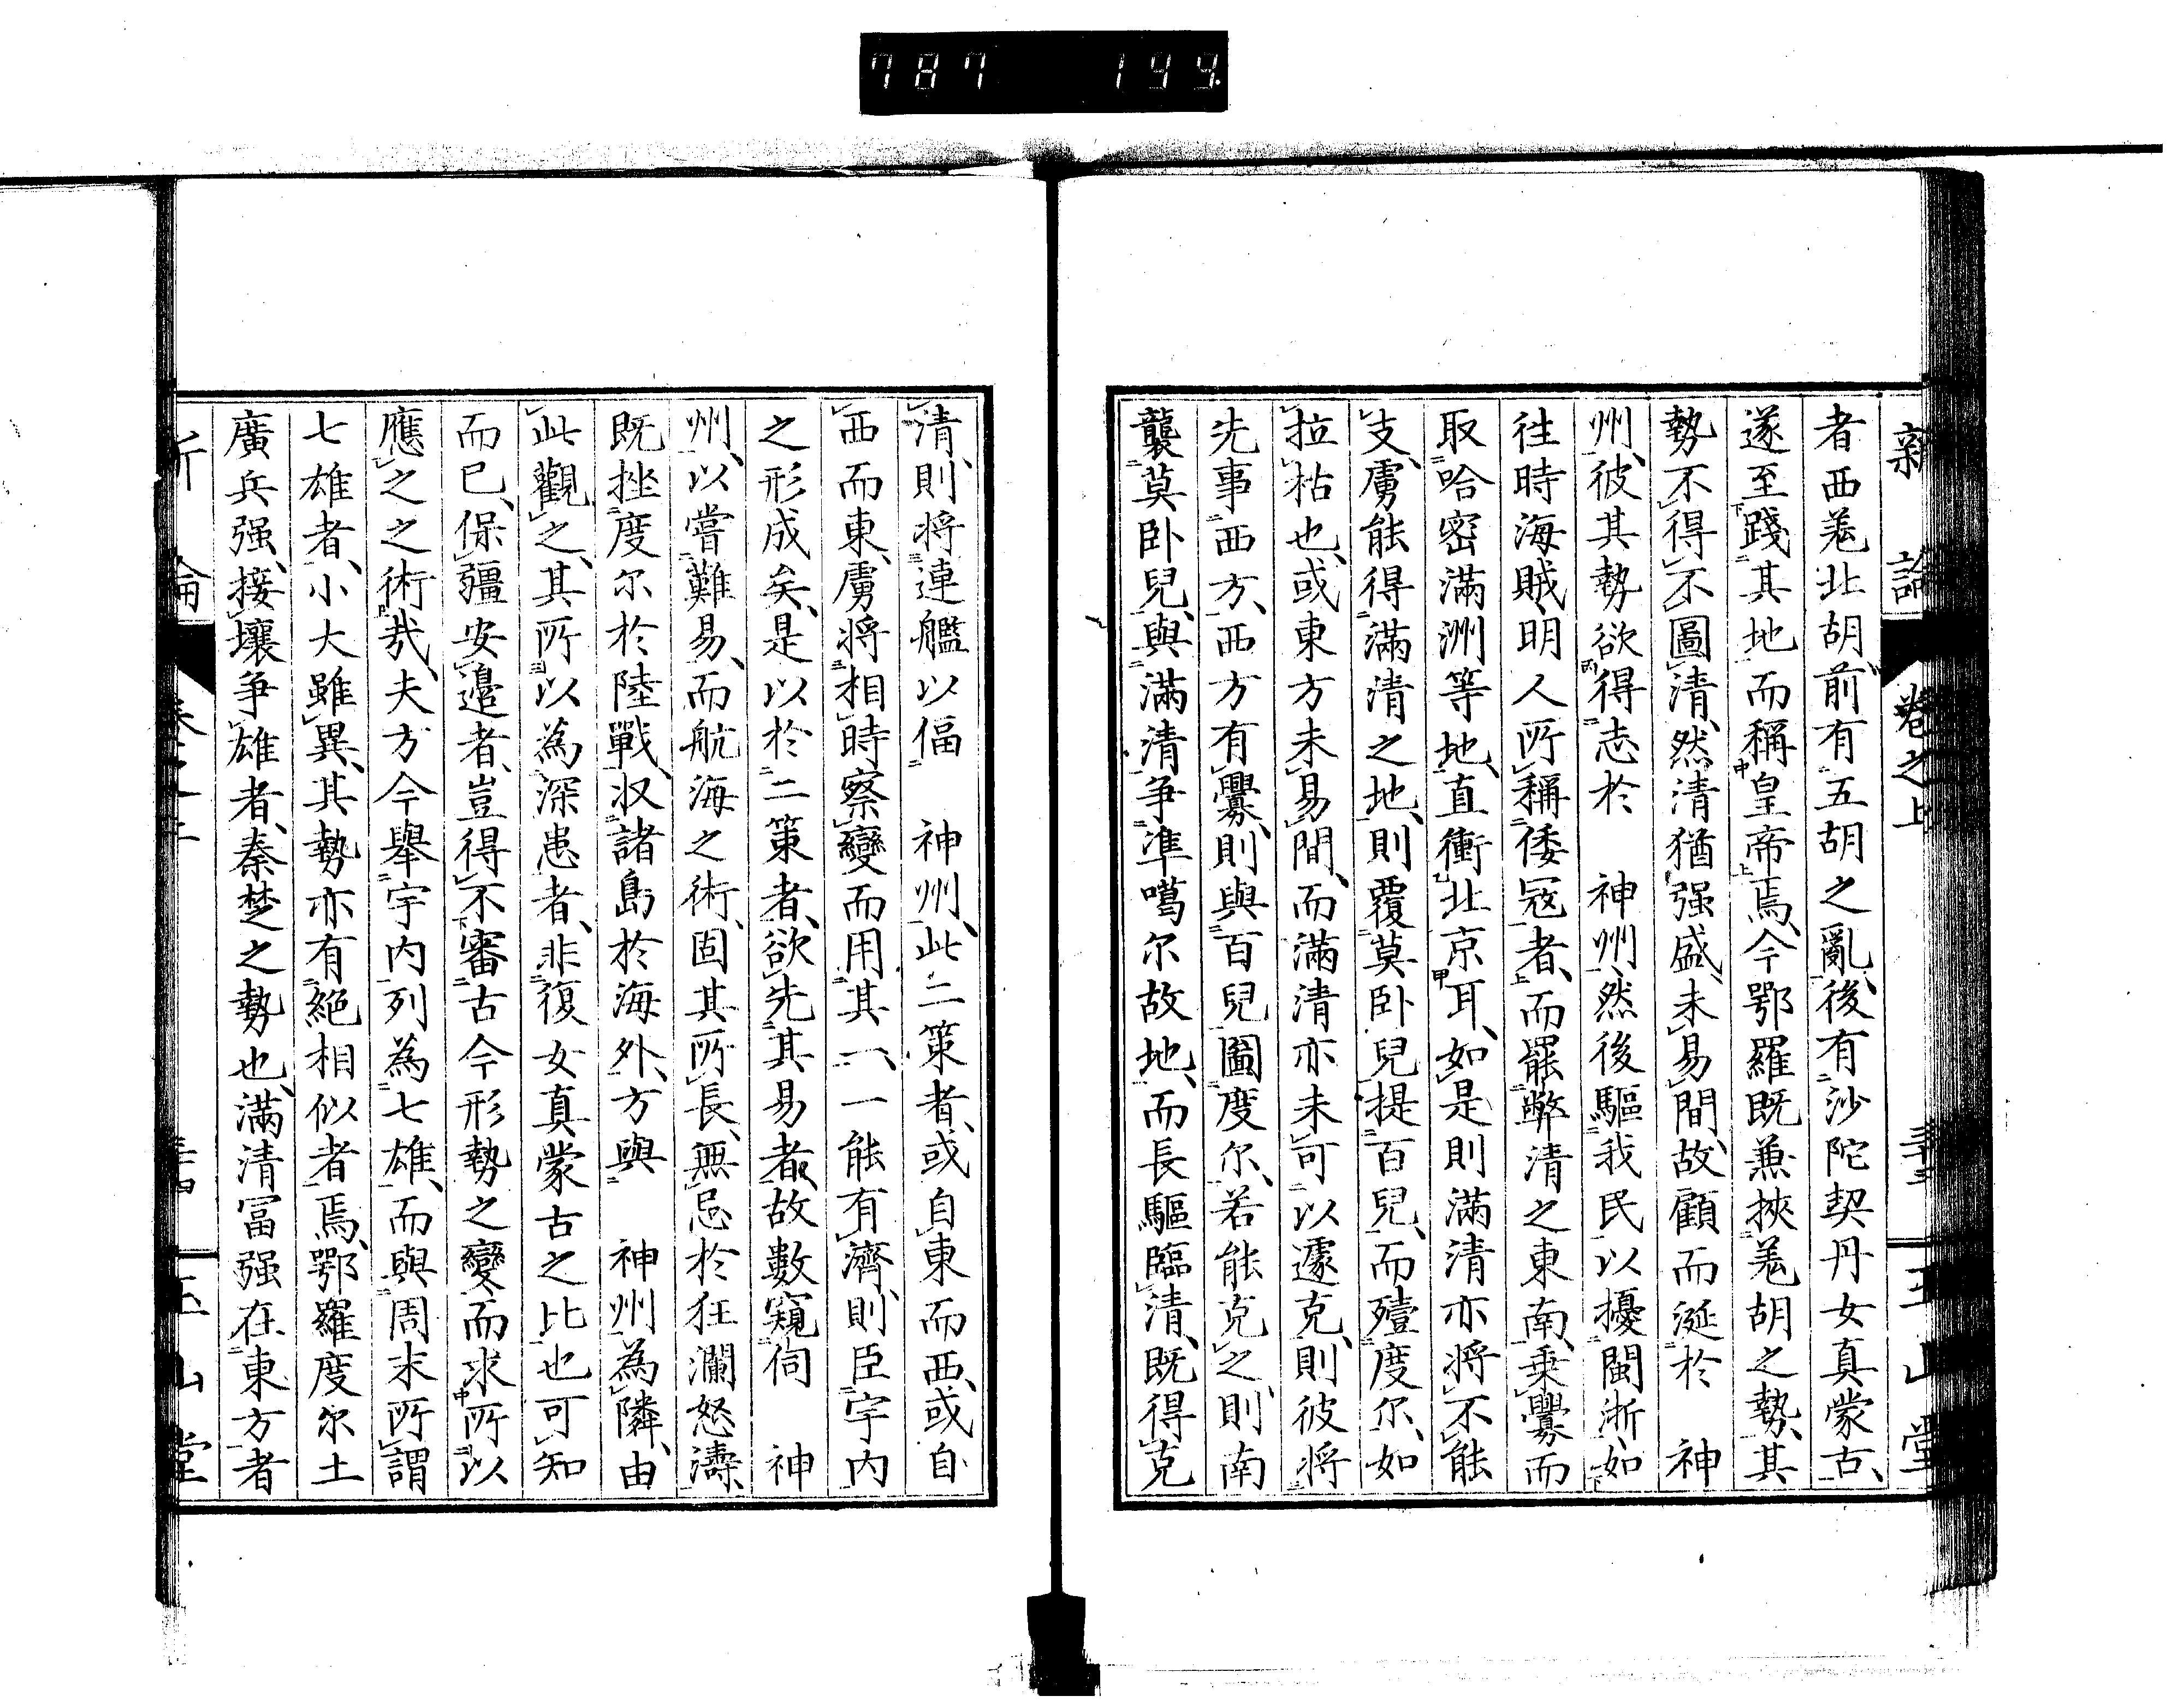 787 199.
新論 卷之上 玉山堂
者西羗北胡、前有五胡之亂、後有沙陀契丹女真蒙古、
遂至踐其地而稱皇帝焉、今鄂羅既兼挾羗胡之勢、其
勢不得不圖清、然清猶强盛、未易間、故顧而涎於　神
州、彼其勢欲得志於　神州、然後驅我民以擾閩浙、如
往時海賊、明人所稱倭寇者、而罷弊清之東南、乗釁而
取哈密滿洲等地、直衝北京耳、如是則滿清亦將不能
支、虜能得滿清之地、則覆莫卧兒、提百兒、而殪度尓、如
拉枯也、或東方未易間、而滿清亦未可以遽克、則彼將
先事西方、西方有釁、則與百兒圖度尓、若能克之、則南
襲莫卧兒、與滿清争準噶尓故地、而長驅臨清、既得克
清、則將連艦以偪　神州、此二策者、或自東而西、或自
西而東、虜將相時察變而用其一、一能有濟、則臣宇内
之形成矣、是以於二策者、欲先其易者、故數窺伺　神
州、以嘗難易、而航海之術、固其所長、無忌於狂瀾怒濤、
既挫度尓於陸戰、収諸島於海外、方與　神州為隣、由
此觀之、其所以為深患者、非復女真蒙古之比也、可知
而已、保疆安邉者、豈得不審古今形勢之變、而求所以
應之之術哉、夫方今舉宇内列為七雄、而與周末所謂
七雄者、小大雖異、其勢亦有絕相似者焉、鄂羅度尓土
廣兵强、接壤争雄者、秦楚之勢也、滿清冨强在東方者